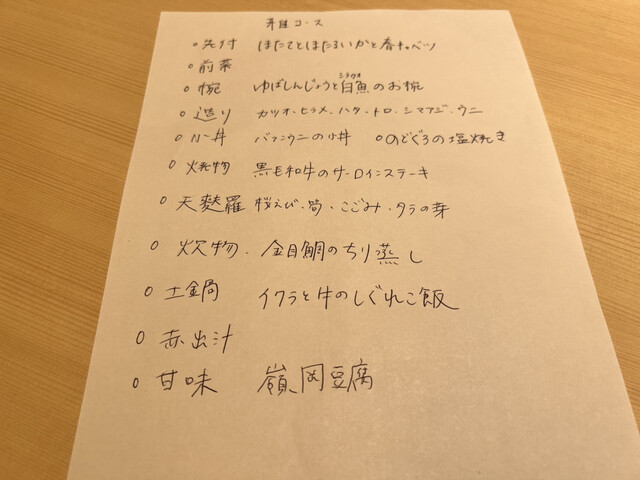 コース
○先付 ほたてとほたるいかと春キャベツ
○前菜
○椀 ゆばしんじょうと白魚のお椀
シラウオ
○造り カツオ、ヒラメ、ハタ、トロ、シマアジ、ウニ
○小丼 バフンウニの小丼 ○のどぐろの塩焼き
○焼物 黒毛和牛のサーロインステーキ
○天麩羅 桜えび、筍、こごみ、タラの芽
○炊物、金目鯛のちり蒸し
○土鍋 イクラと牛のしぐれご飯
○赤出汁
○甘味 嶺岡豆腐